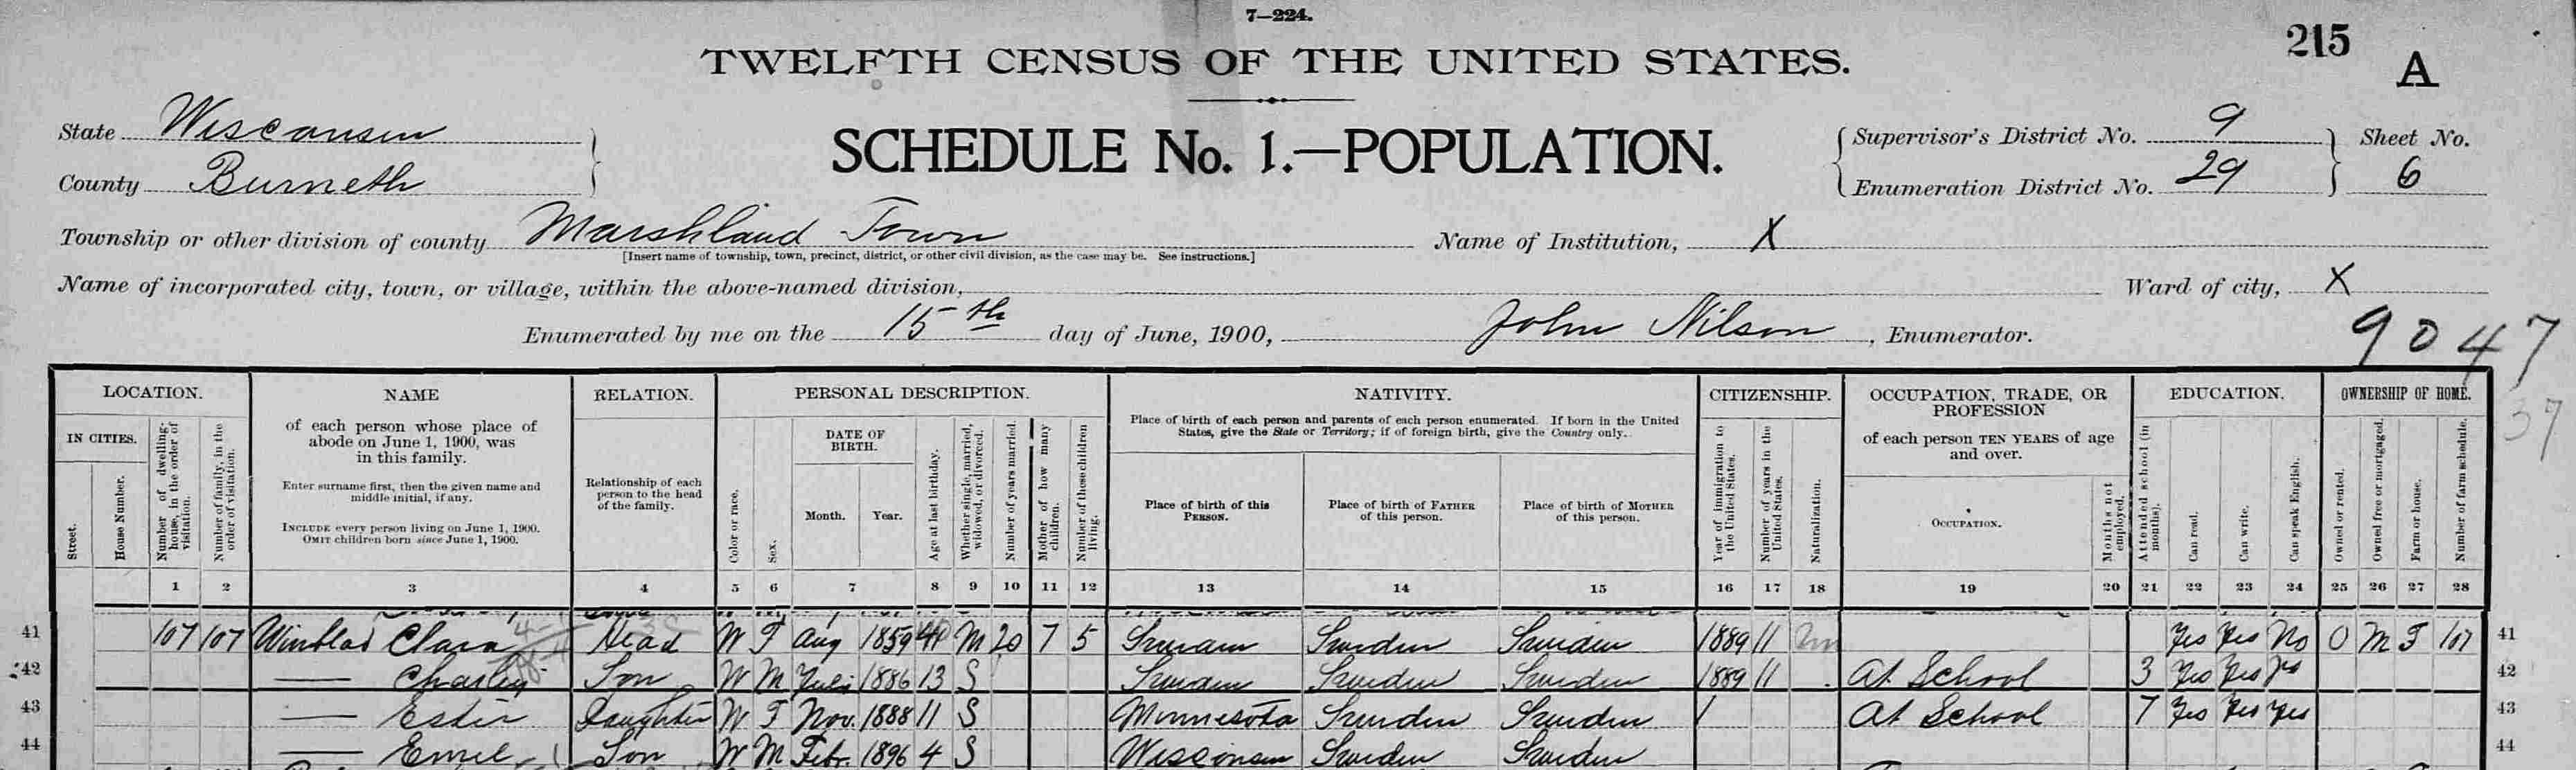 7—224.
215
A
TWELFTH CENSUS OF THE UNITED STATES.
State Wisconsin
County Burneth
SCHEDULE No. 1.—POPULATION.
Supervisor's District No. 9
Enumeration District No. 29
Sheet No.
6
Township or other division of county Marshland Town
[Insert name of township, town, precinct, district, or other civil division, as the case may be. See instructions.]
Name of Institution, X
Name of incorporated city, town, or village, within the above-named division,
Ward of city, X
Enumerated by me on the 15th day of June, 1900, John Nilson, Enumerator.
9047
37
LOCATION.
IN CITIES.
Street.
House Number.
Number of dwelling-house, in the order of visitation.
Number of family, in the order of visitation.
NAME
of each person whose place of
abode on June 1, 1900, was
in this family.
Enter surname first, then the given name and
middle initial, if any.
INCLUDE every person living on June 1, 1900.
OMIT children born since June 1, 1900.
RELATION.
Relationship of each
person to the head
of the family.
PERSONAL DESCRIPTION.
Color or race.
Sex.
DATE OF
BIRTH.
Month. Year.
Age at last birthday.
Whether single, married, widowed, or divorced.
Number of years married.
Mother of how many children.
Number of these children living.
NATIVITY.
Place of birth of each person and parents of each person enumerated. If born in the United
States, give the State or Territory; if of foreign birth, give the Country only.
Place of birth of this
PERSON.
Place of birth of FATHER
of this person.
Place of birth of MOTHER
of this person.
CITIZENSHIP.
Year of immigration to the United States.
Number of years in the United States.
Naturalization.
OCCUPATION, TRADE, OR
PROFESSION
of each person TEN YEARS of age
and over.
OCCUPATION.
Months not employed.
EDUCATION.
Attended school (in months).
Can read.
Can write.
Can speak English.
OWNERSHIP OF HOME.
Owned or rented.
Owned free or mortgaged.
Farm or house.
Number of farm schedule.
1 2 3 4 5 6 7 8 9 10 11 12 13 14 15 16 17 18 19 20 21 22 23 24 25 26 27 28
41 107 107 Winblad Clara Head W F Aug 1859 M 20 7 5 Sweden Sweden Sweden 1889 11 Yes Yes No O M F 107 41
42 — Charley Son W M Juli 1886 13 S Sweden Sweden Sweden 1889 11 At School 3 Yes Yes Yes 42
43 — Ester Daughter W F Nov. 1888 11 S Minnesota Sweden Sweden At School 7 Yes Yes Yes 43
44 — Emil Son W M Febr. 1896 4 S Wisconsin Sweden Sweden 44